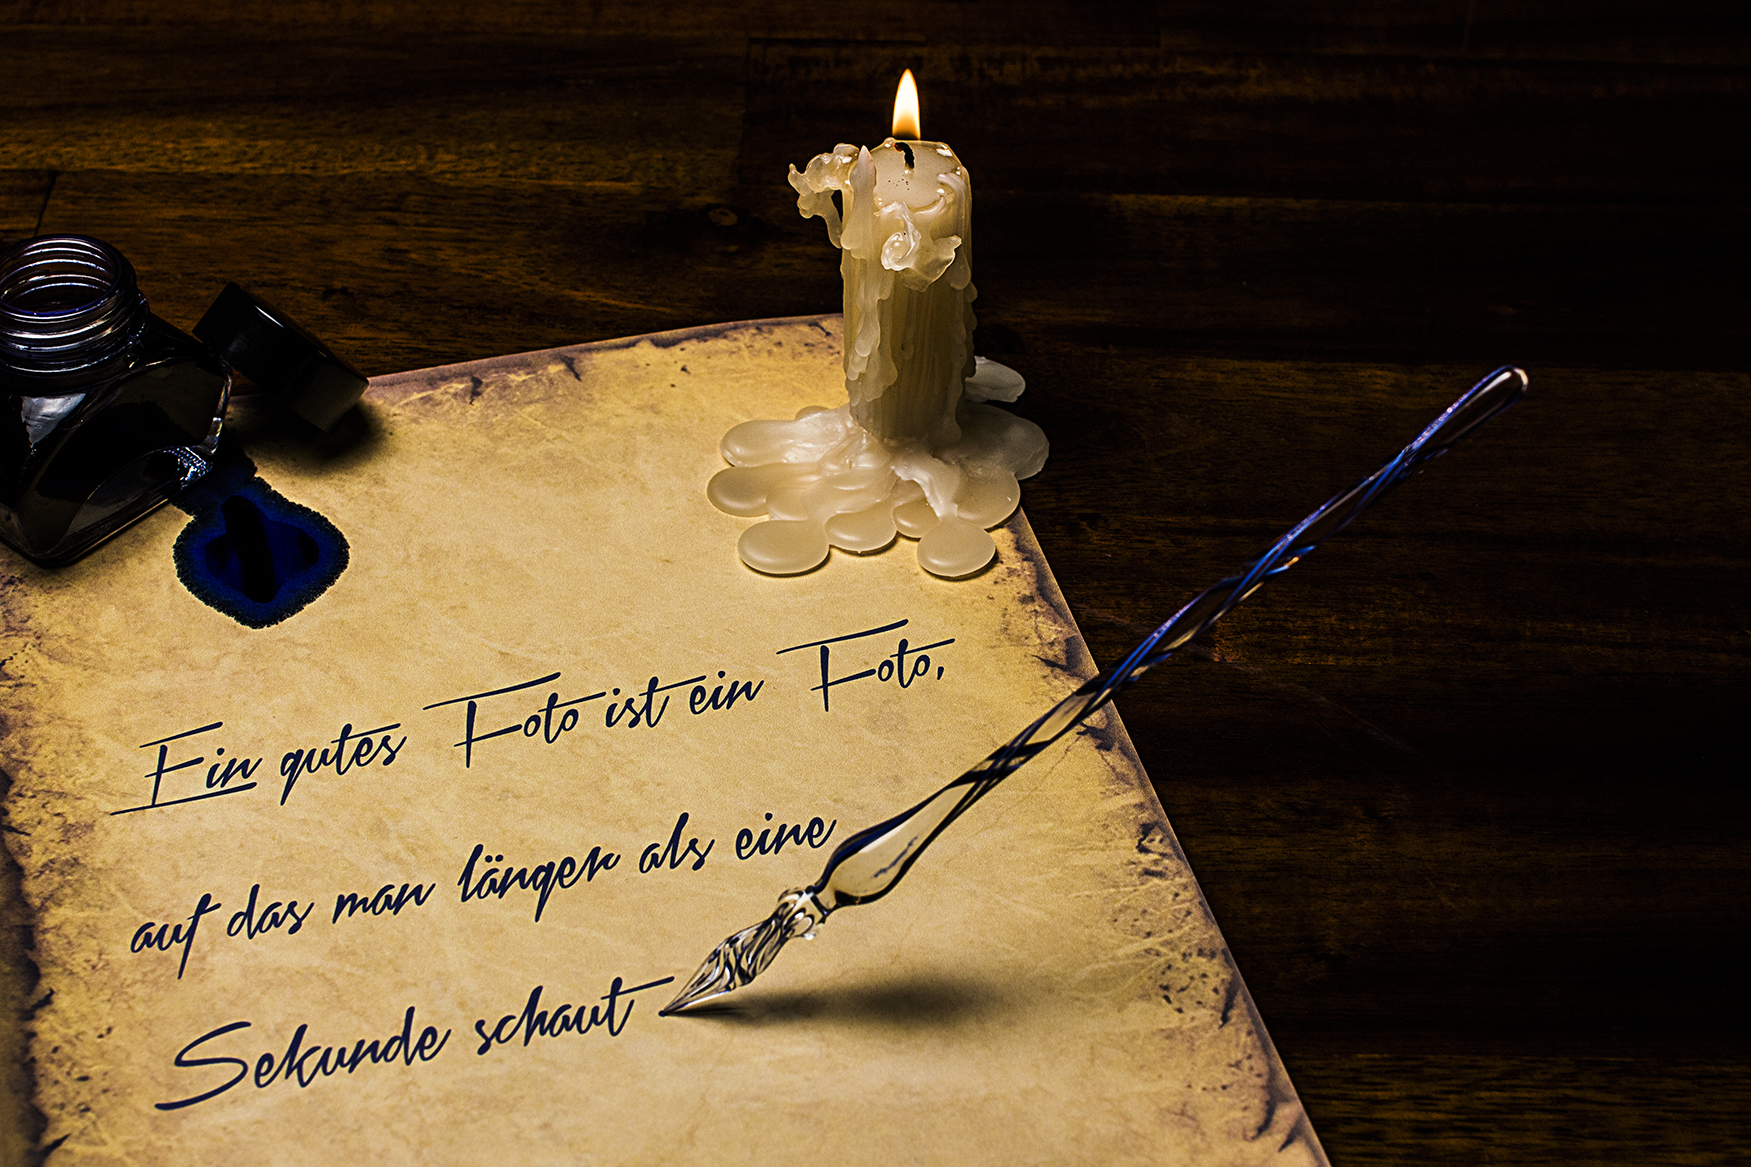 Ein gutes Foto ist ein Foto,
auf das man länger als eine
Sekunde schaut